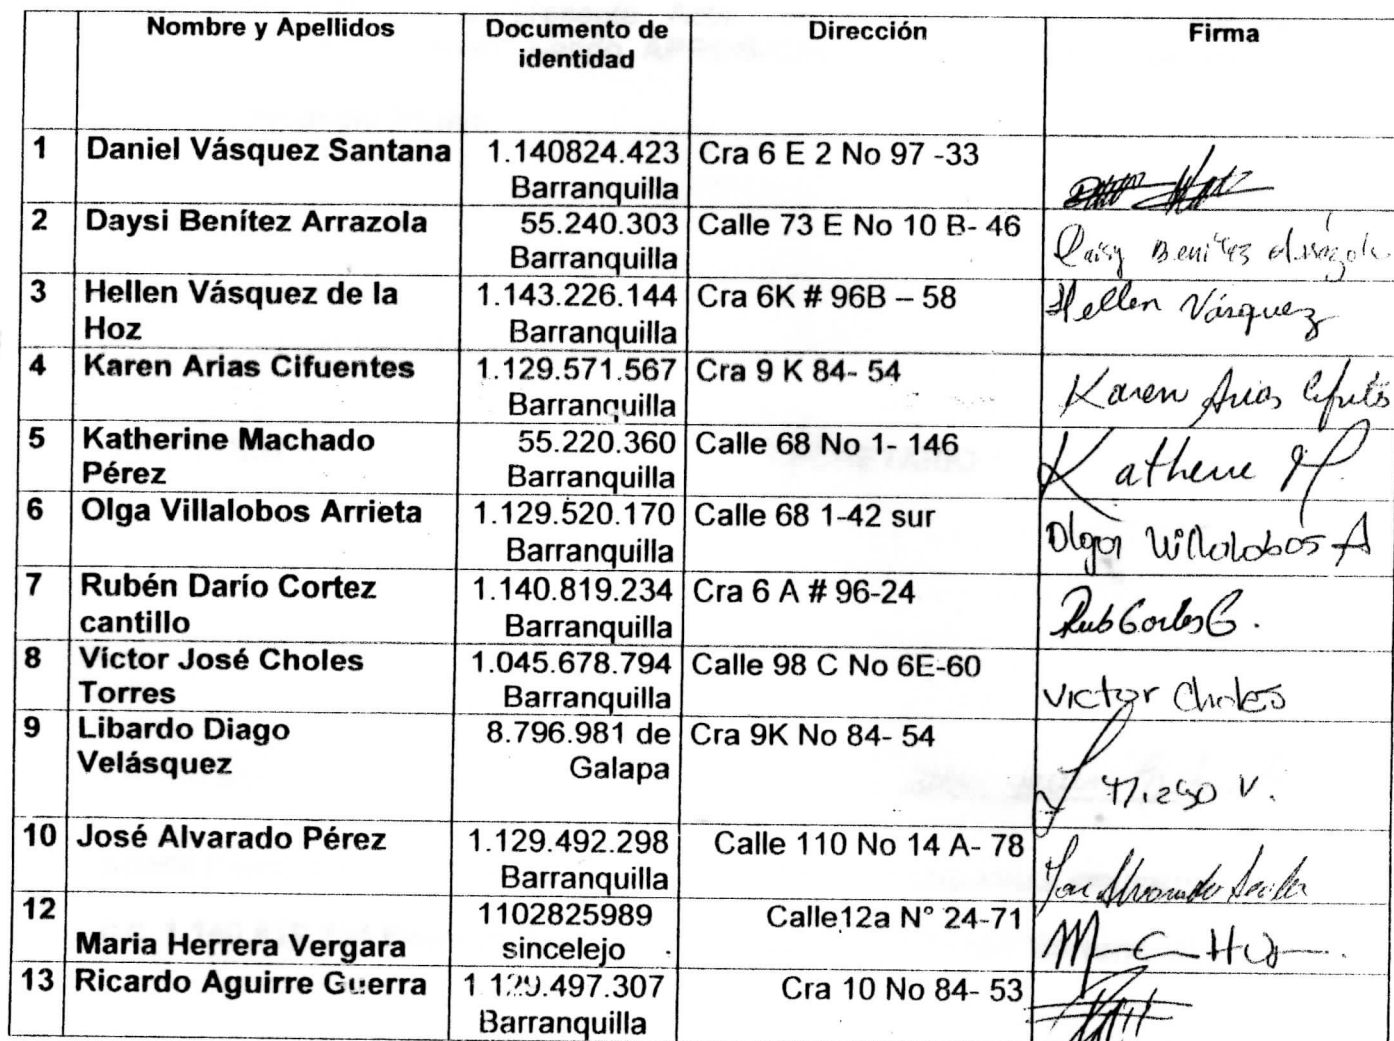 Nombre y Apellidos Documento de identidad Dirección Firma
1 Daniel Vásquez Santana 1.140824.423 Barranquilla Cra 6 E 2 No 97 -33
2 Daysi Benítez Arrazola 55.240.303 Barranquilla Calle 73 E No 10 B- 46 Daisy Benitez
3 Hellen Vásquez de la Hoz 1.143.226.144 Barranquilla Cra 6K # 96B – 58 Hellen Vásquez
4 Karen Arias Cifuentes 1.129.571.567 Barranquilla Cra 9 K 84- 54 Karen Arias
5 Katherine Machado Pérez 55.220.360 Barranquilla Calle 68 No 1- 146 M
6 Olga Villalobos Arrieta 1.129.520.170 Barranquilla Calle 68 1-42 sur Olga Villalobos A
7 Rubén Darío Cortez cantillo 1.140.819.234 Barranquilla Cra 6 A # 96-24
8 Víctor José Choles Torres 1.045.678.794 Barranquilla Calle 98 C No 6E-60 Victor Choles
9 Libardo Diago Velásquez 8.796.981 de Galapa Cra 9K No 84- 54 V.
10 José Alvarado Pérez 1.129.492.298 Barranquilla Calle 110 No 14 A- 78 Jose Alvarado
12 Maria Herrera Vergara 1102825989 sincelejo Calle12a N° 24-71
13 Ricardo Aguirre Guerra 1.129.497.307 Barranquilla Cra 10 No 84- 53